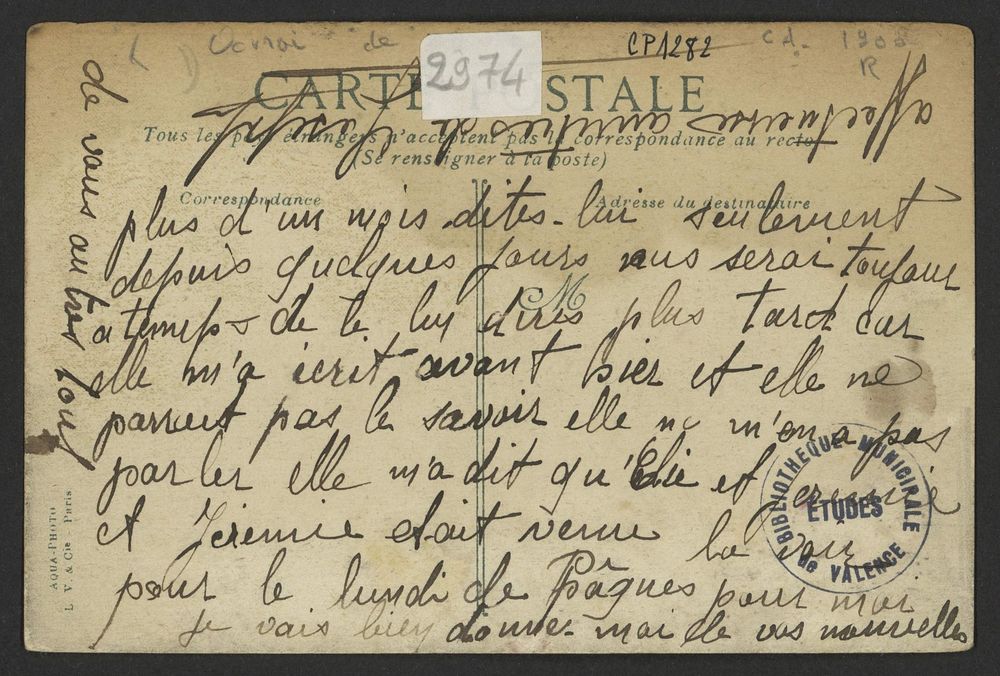 CP1282
2974
CARTE POSTALE
Tous les pays étrangers n'acceptent pas la correspondance au recto
(Se renseigner à la poste)
Correspondance
Adresse du destinataire
plus d'un mois dites-lui seulement
depuis quelques jours nus serai toujour
a temps de le luy dires plus tard car
elle m'a ecrit avant hier et elle ne
parrait pas le savoir elle ne m'en a pas
parler elle m'a dit qu'Elie et
et Jeremie etait venue la voir
pour le lundi de Pâques pour moi
je vais bien donnez-moi de vos nouvelles
de vous autres tous
affectueuses amitiés Joseph
AQUA-PHOTO
L. V. & Cie - Paris
BIBLIOTHEQUE MUNICIPALE
ETUDES
de VALENCE